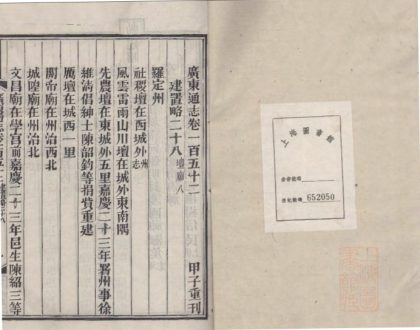 廣東通志卷一百五十二
甲子重刊
建置略二十八
壇廟八
羅定州
社稷壇在西城外州志
風雲雷雨山川壇在城外東南隅
先農壇在東城外五里嘉慶二十三年署州事徐
維清倡紳士陳韶鈞等捐貲重建
厲壇在城西一里
關帝廟在州治西北
城隍廟在州治北
文昌廟在學宮前嘉慶二十三年邑生陳紹三等
上海圖書館
652050